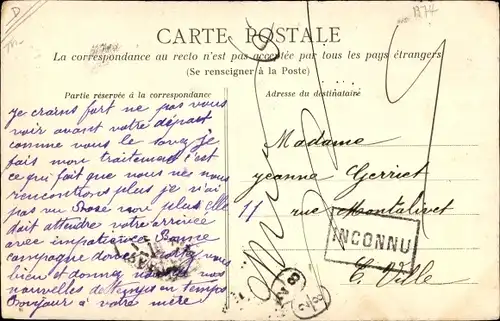 D
A74
CARTE POSTALE
La correspondance au recto n'est pas acceptée par tous les pays étrangers
(Se renseigner à la Poste)
Partie réservée à la correspondance
Je crains fort ne pas vous
voir avant votre départ
comme vous le savez je
fais mon traitement c'est
ce qui fait que nous nes nous
rencontrons plus je n'ai
pas vu Rose non plus Elle
doit attendre votre arrivée
avec impatience Bonne
campagne donc portez vous
bien et donnez nous de vos
nouvelles de temps en temps
Bonjour à votre mère
Adresse du destinataire
Madame
Jeanne Gerriet
11 rue Montalivet
INCONNU
E. Ville